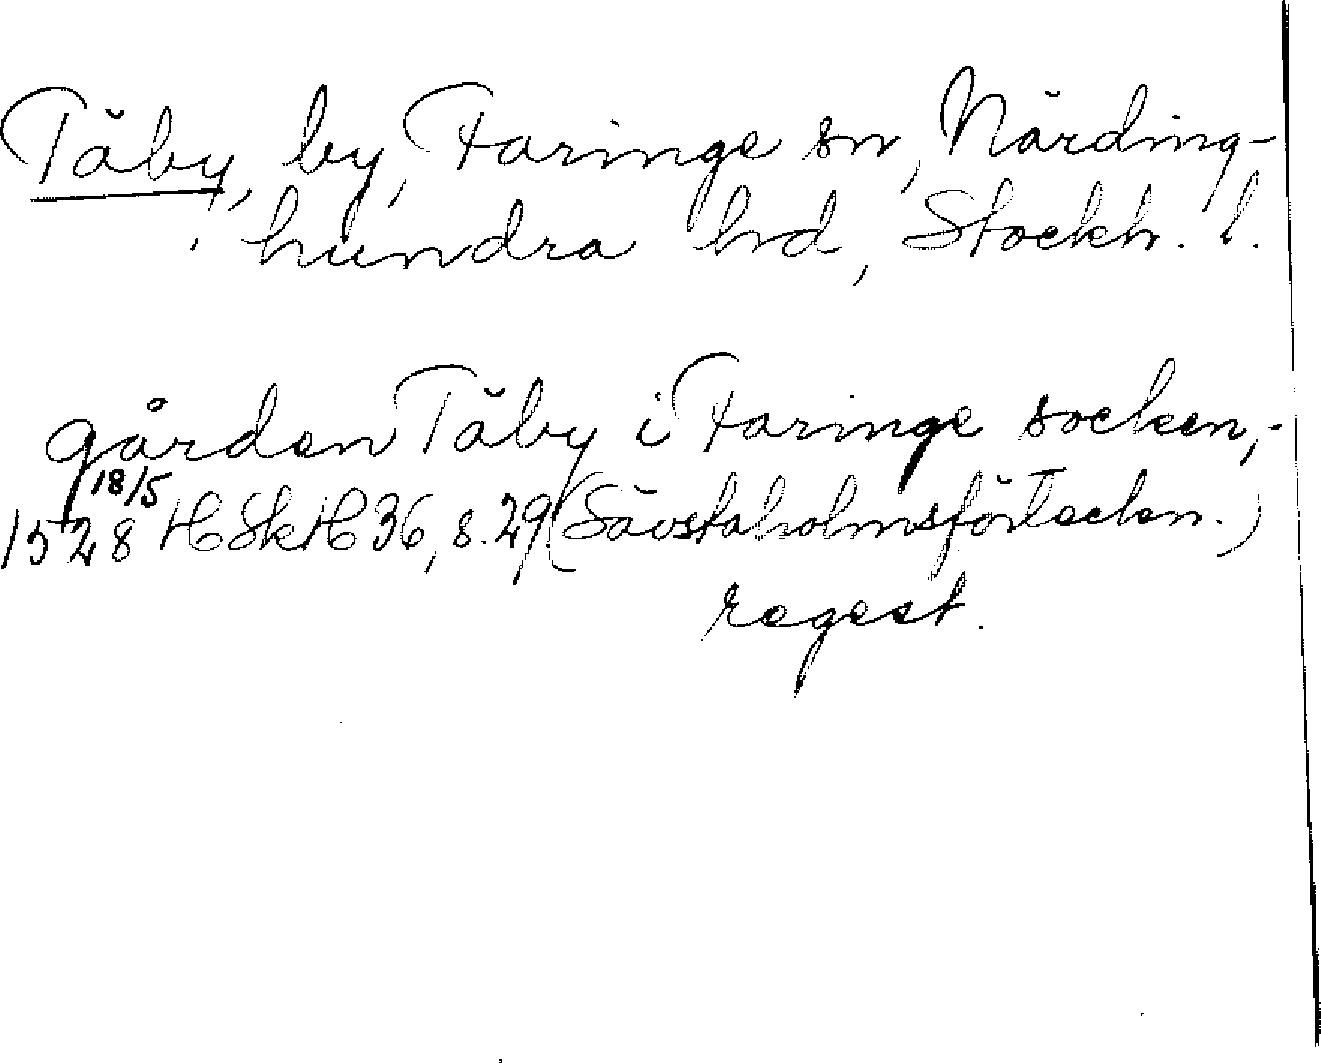 Täby, by, Faringe sn, Närding-
hundra hd, Stockh. l.
gården Täby i Faringe socken,-
18/5
1528 HSkH 36, s. 29 (Sävstaholmsförtecken.)
regest.